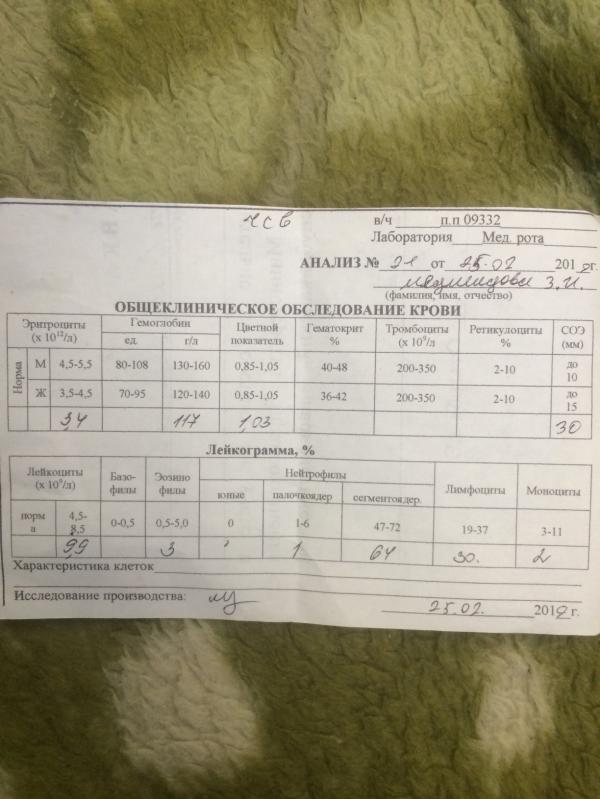 ЧСВ
в/ч п.п 09332
Лаборатория Мед. рота
АНАЛИЗ № 21 от 25.02 201 г.
З.И.
(фамилия, имя, отчество)
ОБЩЕКЛИНИЧЕСКОЕ ОБСЛЕДОВАНИЕ КРОВИ
Эритроциты (х 10¹²/л) Гемоглобин Цветной показатель Гематокрит % Тромбоциты (х 10⁹/л) Ретикулоциты % СОЭ (мм)
ед. г/л
Норма М 4,5-5,5 80-108 130-160 0,85-1,05 40-48 200-350 2-10 до 10
Ж 3,5-4,5 70-95 120-140 0,85-1,05 36-42 200-350 2-10 до 15
3,4 117 1,03 30
Лейкограмма, %
Лейкоциты (х 10⁹/л) Базо-филы Эозино филы Нейтрофилы Лимфоциты Моноциты
юные палочкоядер сегментоядер.
норм а 4,5-8,5 0-0,5 0,5-5,0 0 1-6 47-72 19-37 3-11
9,9 3 1 64 30. 2
Характеристика клеток
Исследование производства:
25.02. 201 г.